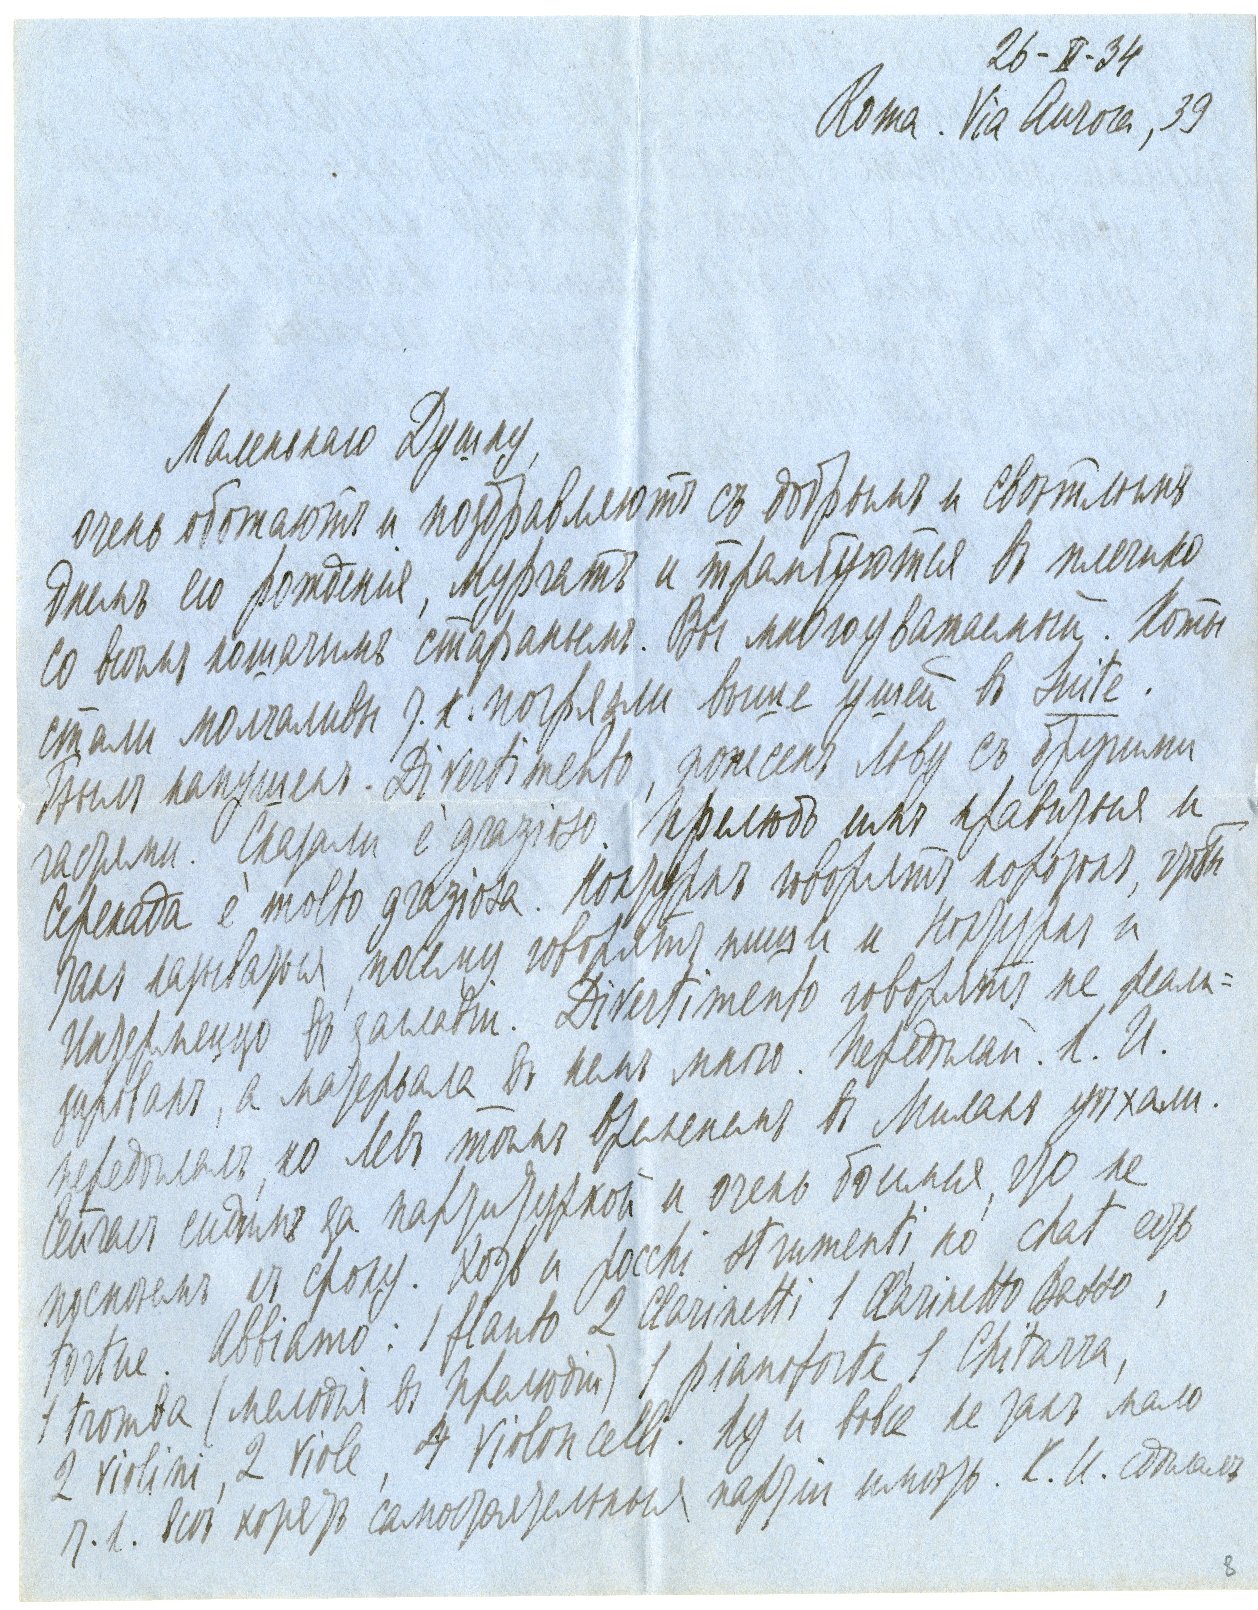 26-II-34
Roma. Via Aurora, 39
Маленькаго Душку,
очень обожаютъ и поздравляютъ съ добрымъ и свѣтлымъ
днемъ его рожденія, мурчатъ и трамбуются въ плечико
со всѣмъ кошачимъ стараньемъ. Вы многоуважаемый. Коты
стали молчаливы т.к. погрязли выше ушей въ Suite.
Былъ накушенъ. Divertimento, донесенъ Льву съ другими
частями. Сказали è grazioso. Прелюдъ имъ нравится и
Серенада è molto graziosa. Ноктурнъ говорятъ коротокъ, чтобы
такъ называться, посему говорятъ пиши и Ноктурнъ и
Интермеццо въ заглавіи. Divertimento говорятъ не реали=
зированъ, а матерьяла въ немъ много. Передѣлай. К. И.
передѣлалъ, но Левъ тѣмъ временемъ въ Миланъ уѣхали.
Сейчасъ сидимъ за партитуркой и очень боимся, что не
поспѣемъ къ сроку. Хоть и pocchi strumenti но chat есть
tortue. Abbiamo: 1 flauto 2 Clarinetti 1 Clarinetto Basso,
1 tromba (мелодія въ Прелюдіи) 1 pianoforte 1 Chitarra,
2 violini, 2 viole, 4 violoncelli. Ну и вовсе не такъ мало
т.к. всѣ хотятъ самостоятельныя партіи имѣть. К. И. сдѣлалъ
8